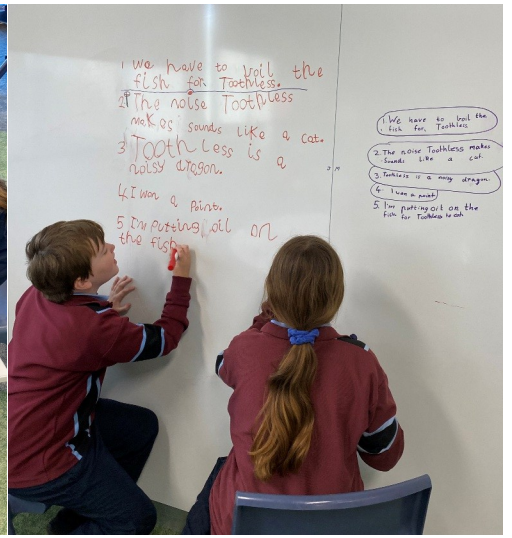 1 We have to boil the
fish for Toothless.
2 The noise Toothless
makes sounds like a cat.
3 Toothless is a
noisy dragon.
4 I won a point.
5 Im putting oil on
the fish
1. We have to boil the
fish for Toothless
2. The noise Toothless makes
sounds like a cat.
3. Toothless is a noisy dragon.
4. I won a point
5. I'm putting oil on the
fish for Toothless to eat